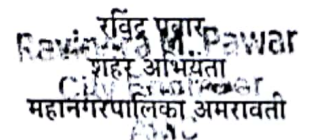 रविंद्र पवार
Ravindra Pawar
शहर अभियंता
City Engineer
महानगरपालिका,अमरावती